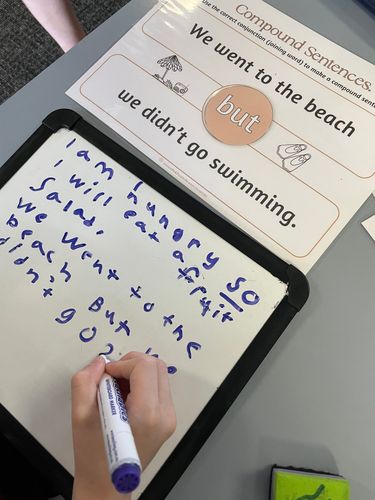 Compound Sentences.
Use the correct conjunction (joining word) to make a compound sentence
We went to the beach
but
we didn't go swimming.
I am hungry so
I will eat a fruit
salad.
We went to the
beach But we
didn't go